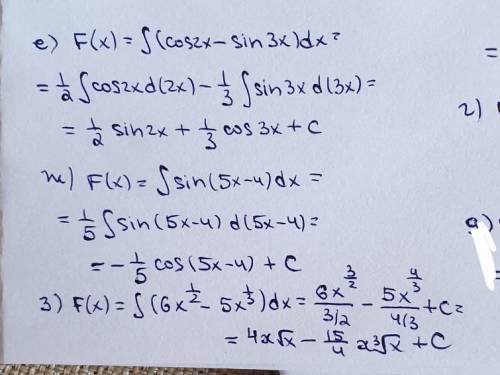 е) F(x) = ∫(cos2x – sin 3x)dx =
= 1/2 ∫cos2x d(2x) – 1/3 ∫sin 3x d(3x) =
= 1/2 sin2x + 1/3 cos 3x + C
ж) F(x) = ∫sin(5x-4)dx =
= 1/5 ∫sin(5x-4) d(5x-4) =
= – 1/5 cos(5x-4) + C
з) F(x) = ∫(6x^(1/2) – 5x^(1/3))dx = 6x^(3/2)/(3/2) – 5x^(4/3)/(4/3) + C =
= 4x√x – 15/4 x ³√x + C
2)